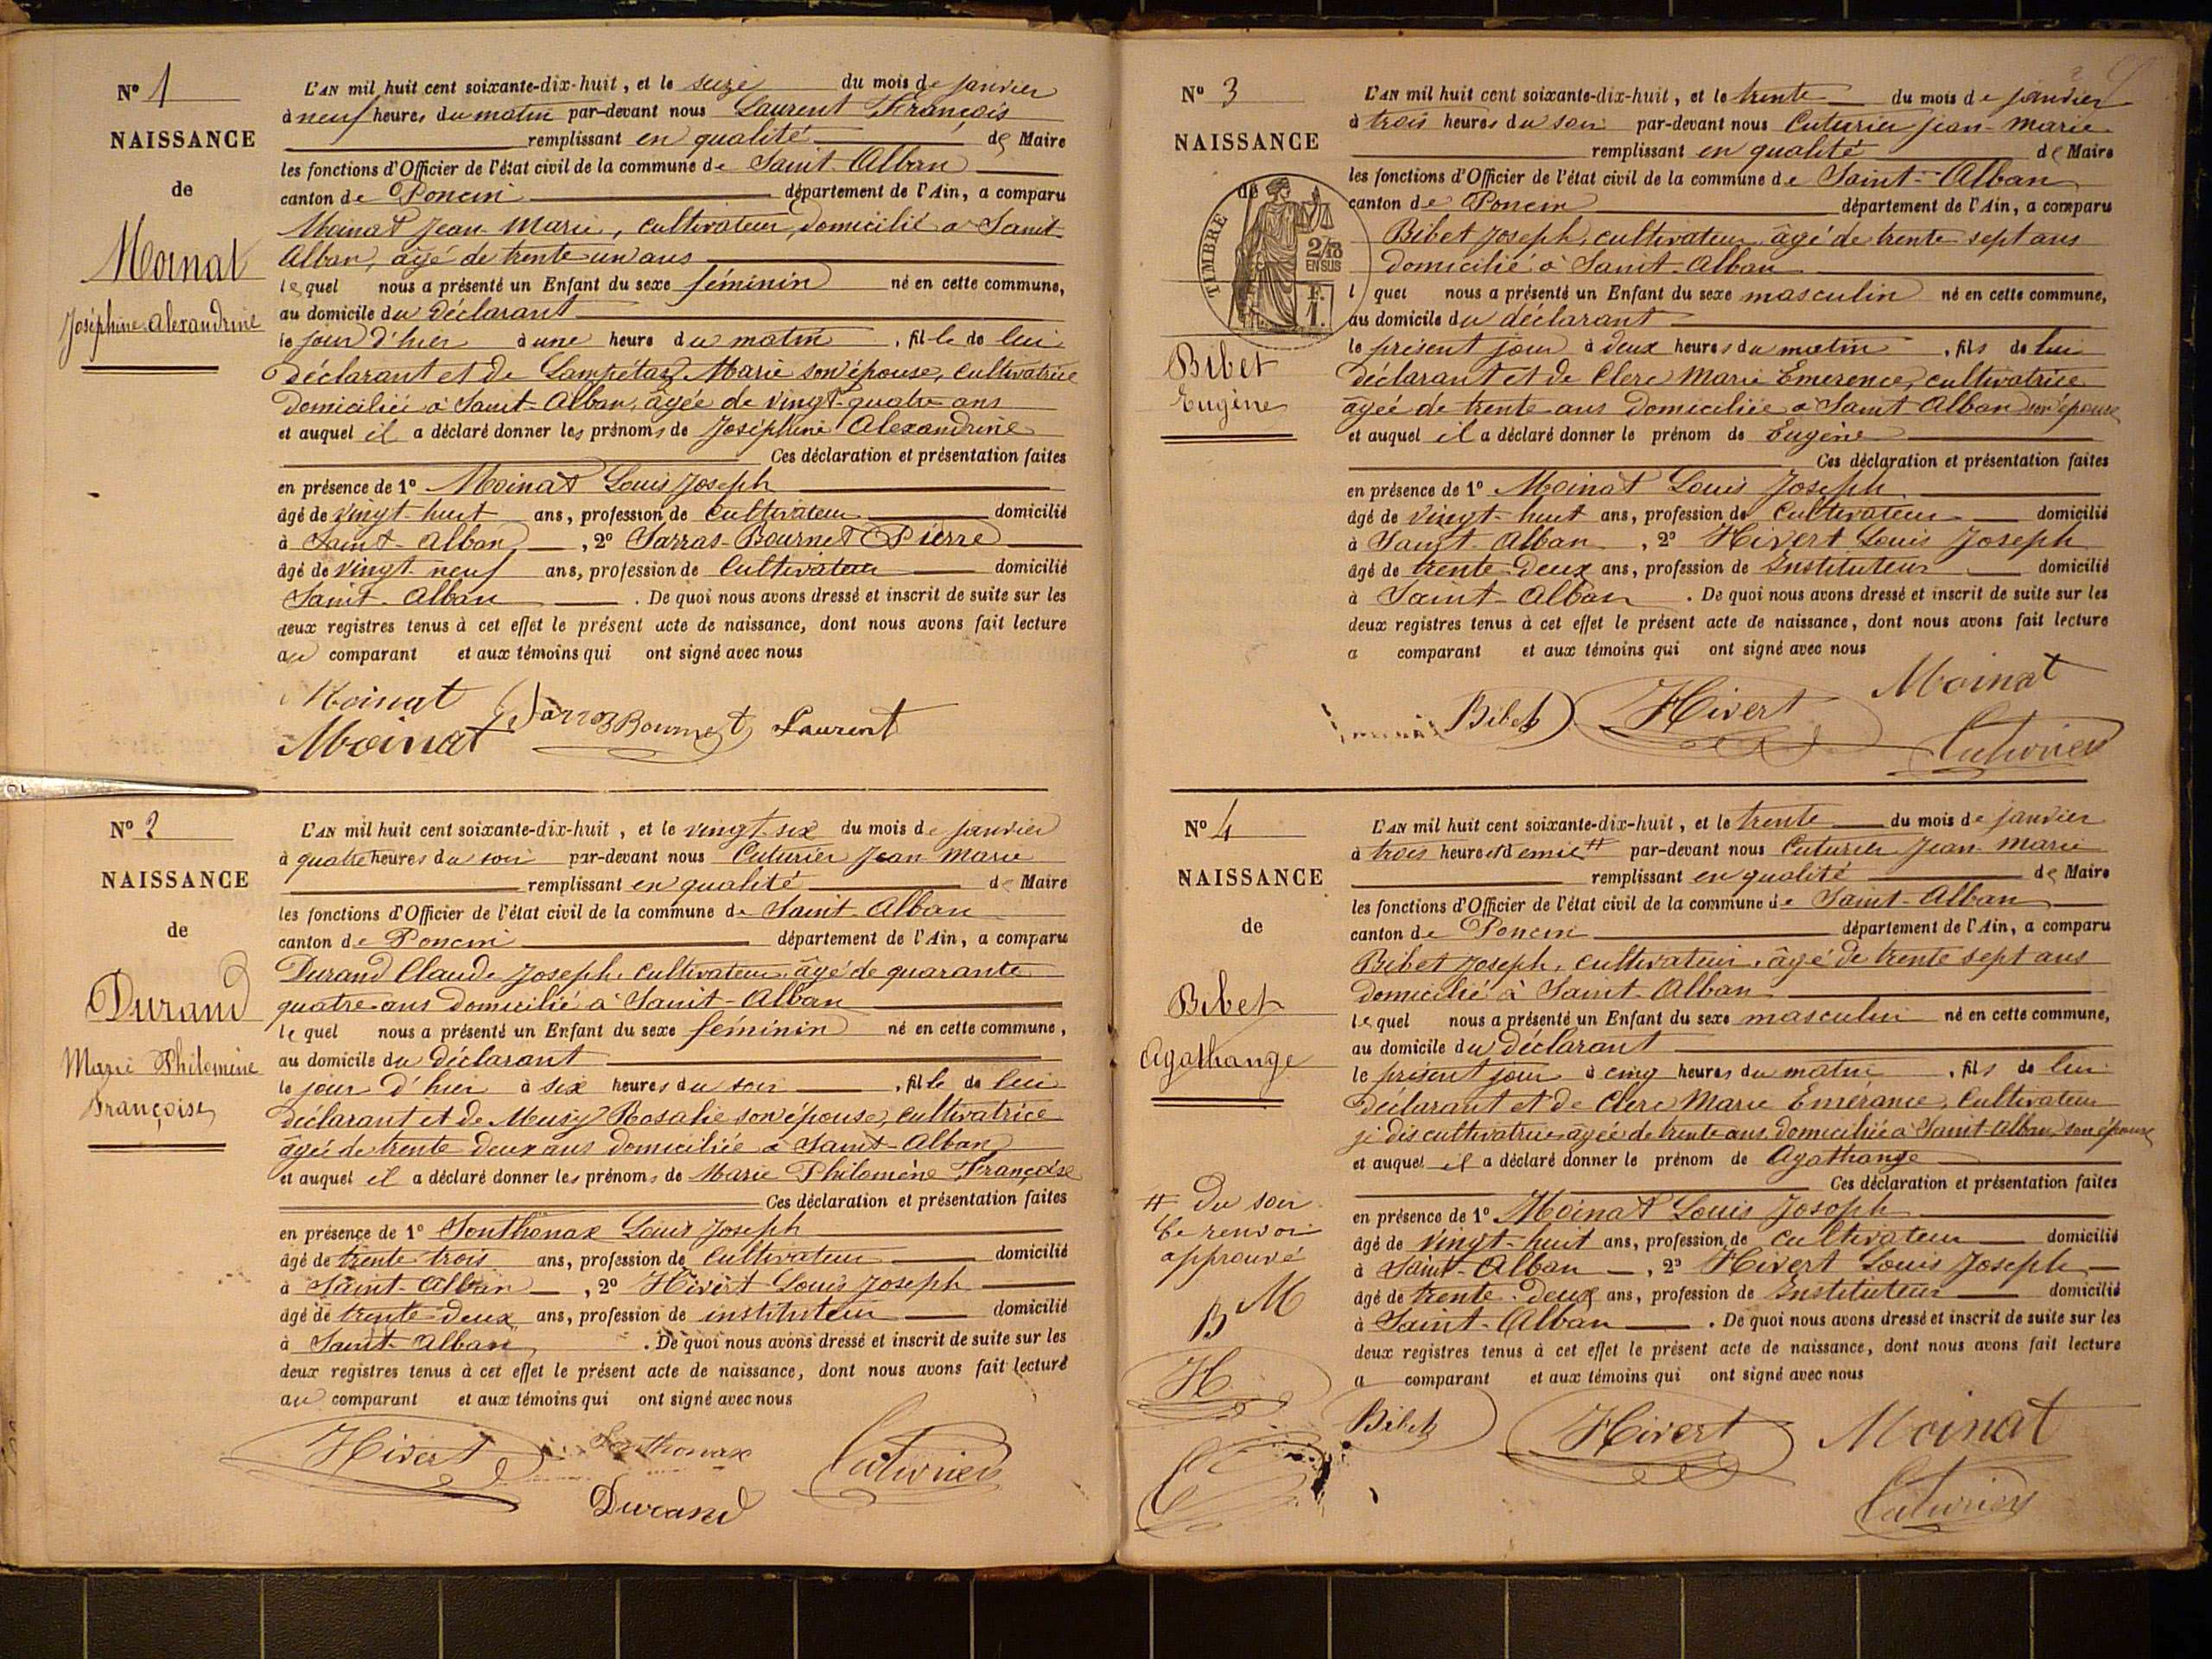 N° 1
NAISSANCE
de
Moinat
Joséphine Alexandrine
L'AN mil huit cent soixante-dix-huit, et le seize du mois de janvier
à neuf heures du matin par-devant nous Laurent François
remplissant en qualité de Maire
les fonctions d'Officier de l'état civil de la commune de Saint-Alban
canton de Poncin département de l'Ain, a comparu
Moinat Jean Marie, cultivateur, domicilié à Saint
Alban, âgé de trente un ans
lequel nous a présenté un Enfant du sexe féminin né en cette commune,
au domicile du déclarant
le jour d'hier à une heure du matin, fille de lui
déclarant et de Marie son épouse, cultivatrice
domiciliée à Saint-Alban, âgée de vingt-quatre ans
et auquel il a déclaré donner les prénoms de Joséphine Alexandrine
Ces déclaration et présentation faites
en présence de 1° Moinat Louis Joseph
âgé de vingt-huit ans, profession de Cultivateur domicilié
à Saint-Alban, 2° Sarras-Bournet Pierre
âgé de vingt-neuf ans, profession de Cultivateur domicilié
Saint-Alban. De quoi nous avons dressé et inscrit de suite sur les
deux registres tenus à cet effet le présent acte de naissance, dont nous avons fait lecture
au comparant et aux témoins qui ont signé avec nous
Moinat
Moinat Bournet Laurent
N° 2
NAISSANCE
de
Durand
Marie Philomène
Françoise
L'AN mil huit cent soixante-dix-huit, et le vingt-six du mois de janvier
à quatre heures du soir par-devant nous Cuturier Jean Marie
remplissant en qualité de Maire
les fonctions d'Officier de l'état civil de la commune de Saint-Alban
canton de Poncin département de l'Ain, a comparu
Durand Claude Joseph, cultivateur, âgé de quarante
quatre ans domicilié à Saint-Alban
lequel nous a présenté un Enfant du sexe féminin né en cette commune,
au domicile du déclarant
le jour d'hier à six heures du soir, fille de lui
déclarant et de Musy Rosalie son épouse, cultivatrice
âgée de trente deux ans domiciliée à Saint-Alban
et auquel il a déclaré donner les prénoms de Marie Philomène Françoise
Ces déclaration et présentation faites
en présence de 1° Tonthonax Louis Joseph
âgé de trente trois ans, profession de Cultivateur domicilié
à Saint-Alban, 2° Hivert Louis Joseph
âgé de trente-deux ans, profession de instituteur domicilié
à Saint-Alban. De quoi nous avons dressé et inscrit de suite sur les
deux registres tenus à cet effet le présent acte de naissance, dont nous avons fait lecture
au comparant et aux témoins qui ont signé avec nous
Hivert Tonthonax Cuturier
Durand
N° 3
NAISSANCE
de
TIMBRE
2/10
EN SUS
F.
1.
Bibet
Eugène
L'AN mil huit cent soixante-dix-huit, et le trente du mois de janvier
à trois heures du soir par-devant nous Cuturier Jean-Marie
remplissant en qualité de Maire
les fonctions d'Officier de l'état civil de la commune de Saint-Alban
canton de Poncin département de l'Ain, a comparu
Bibet Joseph, cultivateur âgé de trente sept ans
domicilié à Saint-Alban
l quel nous a présenté un Enfant du sexe masculin né en cette commune,
au domicile du déclarant
le présent jour à deux heures du matin, fils de lui
déclarant et de Clerc Marie Emerence, cultivatrice
âgée de trente ans domiciliée à Saint Alban son épouse
et auquel il a déclaré donner le prénom de Eugène
Ces déclaration et présentation faites
en présence de 1° Moinat Louis Joseph
âgé de vingt-huit ans, profession de Cultivateur domicilié
à Saint-Alban, 2° Hivert Louis Joseph
âgé de trente-deux ans, profession de Instituteur domicilié
à Saint-Alban. De quoi nous avons dressé et inscrit de suite sur les
deux registres tenus à cet effet le présent acte de naissance, dont nous avons fait lecture
a comparant et aux témoins qui ont signé avec nous
Bibet Hivert Moinat
Cuturier
N° 4
NAISSANCE
de
Bibet
Agathange
# du soir
Le renvoi
approuvé
B M
H
L'AN mil huit cent soixante-dix-huit, et le trente du mois de janvier
à trois heures et demie # par-devant nous Cuturier Jean-Marie
remplissant en qualité de Maire
les fonctions d'Officier de l'état civil de la commune de Saint-Alban
canton de Poncin département de l'Ain, a comparu
Bibet Joseph, cultivateur, âgé de trente sept ans
domicilié à Saint-Alban
lequel nous a présenté un Enfant du sexe masculin né en cette commune,
au domicile du déclarant
le présent jour à cinq heures du matin, fils de lui
déclarant et de Clerc Marie Emérance, Cultivateur
je dis cultivatrice âgée de trente ans domiciliée à Saint-Alban, son épouse
et auquel il a déclaré donner le prénom de Agathange
Ces déclaration et présentation faites
en présence de 1° Moinat Louis Joseph
âgé de vingt-huit ans, profession de cultivateur domicilié
à Saint-Alban, 2° Hivert Louis Joseph
âgé de trente-deux ans, profession de Instituteur domicilié
à Saint-Alban. De quoi nous avons dressé et inscrit de suite sur les
deux registres tenus à cet effet le présent acte de naissance, dont nous avons fait lecture
a comparant et aux témoins qui ont signé avec nous
Bibet Hivert Moinat
Cuturier